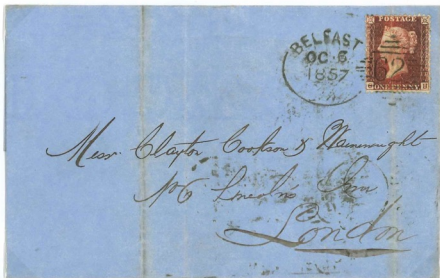 BELFAST
OC 6
1857
POSTAGE
ONE PENNY
62
Messrs Clayton Cookson & Wainewright
No 6 Lincoln's Inn
London